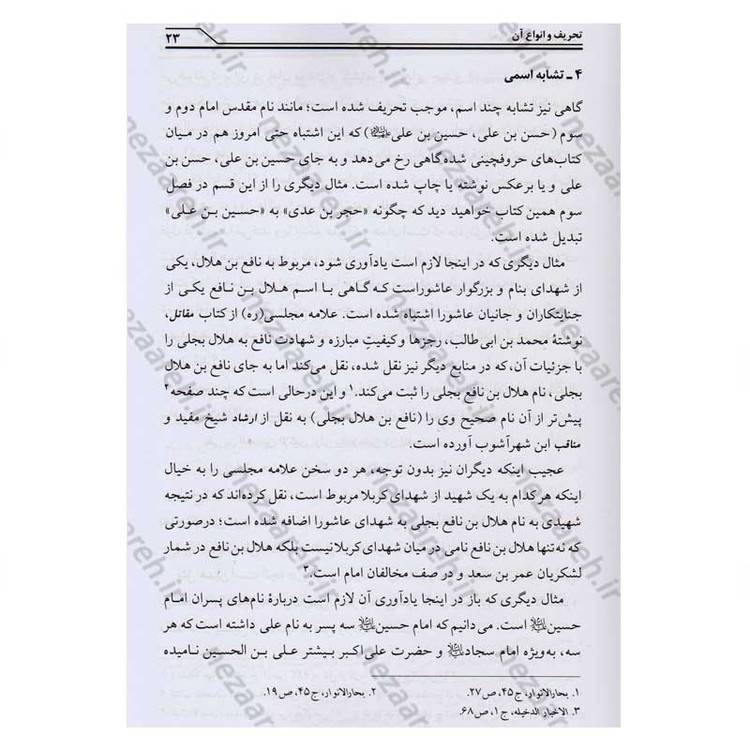 تحریف و انواع آن
۲۳
۴ ـ تشابه اسمی
گاهی نیز تشابه چند اسم، موجب تحریف شده است؛ مانند نام مقدس امام دوم و
سوم (حسن بن علی، حسین بن علی) که این اشتباه حتی امروز هم در میان
کتاب‌های حروفچینی شده گاهی رخ می‌دهد و به جای حسین بن علی، حسن بن
علی و یا برعکس نوشته یا چاپ شده است. مثال دیگری را از این قسم در فصل
سوم همین کتاب خواهید دید که چگونه «حجر بن عدی» به «حسین بن علی»
تبدیل شده است.
مثال دیگری که در اینجا لازم است یادآوری شود، مربوط به نافع بن هلال، یکی
از شهدای بنام و بزرگوار عاشوراست که گاهی با اسم هلال بن نافع یکی از
جنایتکاران و جانیان عاشورا اشتباه شده است. علامه مجلسی(ره) از کتاب مقاتل،
نوشتهٔ محمد بن ابی‌طالب، رجزها و کیفیتِ مبارزه و شهادت نافع به هلال بجلی را
با جزئیات آن، که در منابع دیگر نیز نقل شده، نقل می‌کند اما به جای نافع بن هلال
بجلی، نام هلال بن نافع بجلی را ثبت می‌کند.۱ و این درحالی است که چند صفحه۲
پیش‌تر از آن نام صحیح وی را (نافع بن هلال بجلی) به نقل از ارشاد شیخ مفید و
مناقب ابن شهرآشوب آورده است.
عجیب اینکه دیگران نیز بدون توجه، هر دو سخن علامه مجلسی را به خیال
اینکه هر کدام به یک شهید از شهدای کربلا مربوط است، نقل کرده‌اند که در نتیجه
شهیدی به نام هلال بن نافع بجلی به شهدای عاشورا اضافه شده است؛ درصورتی
که نه تنها هلال بن نافع نامی در میان شهدای کربلا نیست بلکه هلال بن نافع در شمار
لشکریان عمر بن سعد و در صف مخالفان امام است.۳
مثال دیگری که باز در اینجا یادآوری آن لازم است دربارهٔ نام‌های پسران امام
حسین است. می‌دانیم که امام حسین سه پسر به نام علی داشته است که هر
سه، به‌ویژه امام سجاد و حضرت علی‌اکبر بیشتر علی بن الحسین نامیده
۱. بحارالانوار، ج۴۵، ص۲۷. ۲. بحارالانوار، ج۴۵، ص۱۹.
۳. الاخبار الدخیله، ج۱، ص۶۸.
nezaareh.ir